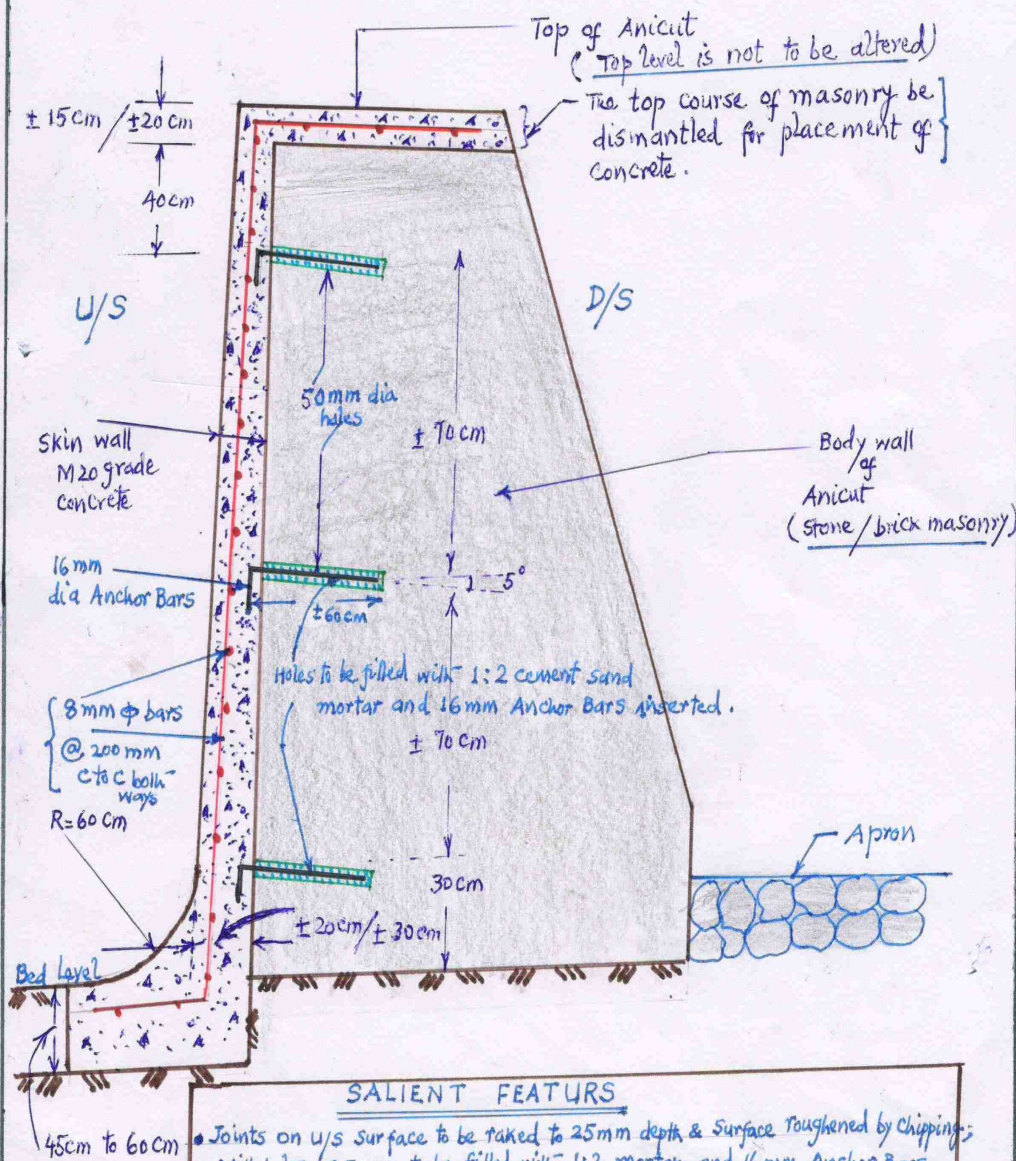 Top of Anicut
( Top level is not to be altered)
The top course of masonry be
dismantled for placement of
concrete.
± 15cm / ±20cm
40cm
U/S
D/S
50mm dia
holes
± 70cm
Skin wall
M20 grade
concrete
Body wall
of
Anicut
(Stone/brick masonry)
16mm
dia Anchor Bars
5°
±60cm
Holes to be filled with 1:2 cement sand
mortar and 16mm Anchor Bars inserted.
± 70cm
8mm ϕ bars
@ 200mm
C to C both
ways
R=60cm
Apron
30cm
±20cm/±30cm
Bed Level
45cm to 60cm
SALIENT FEATURS
• Joints on U/S surface to be raked to 25mm depth & Surface roughened by Chipping;
to be filled with 1:2 mortar and 16mm Anchor Bars